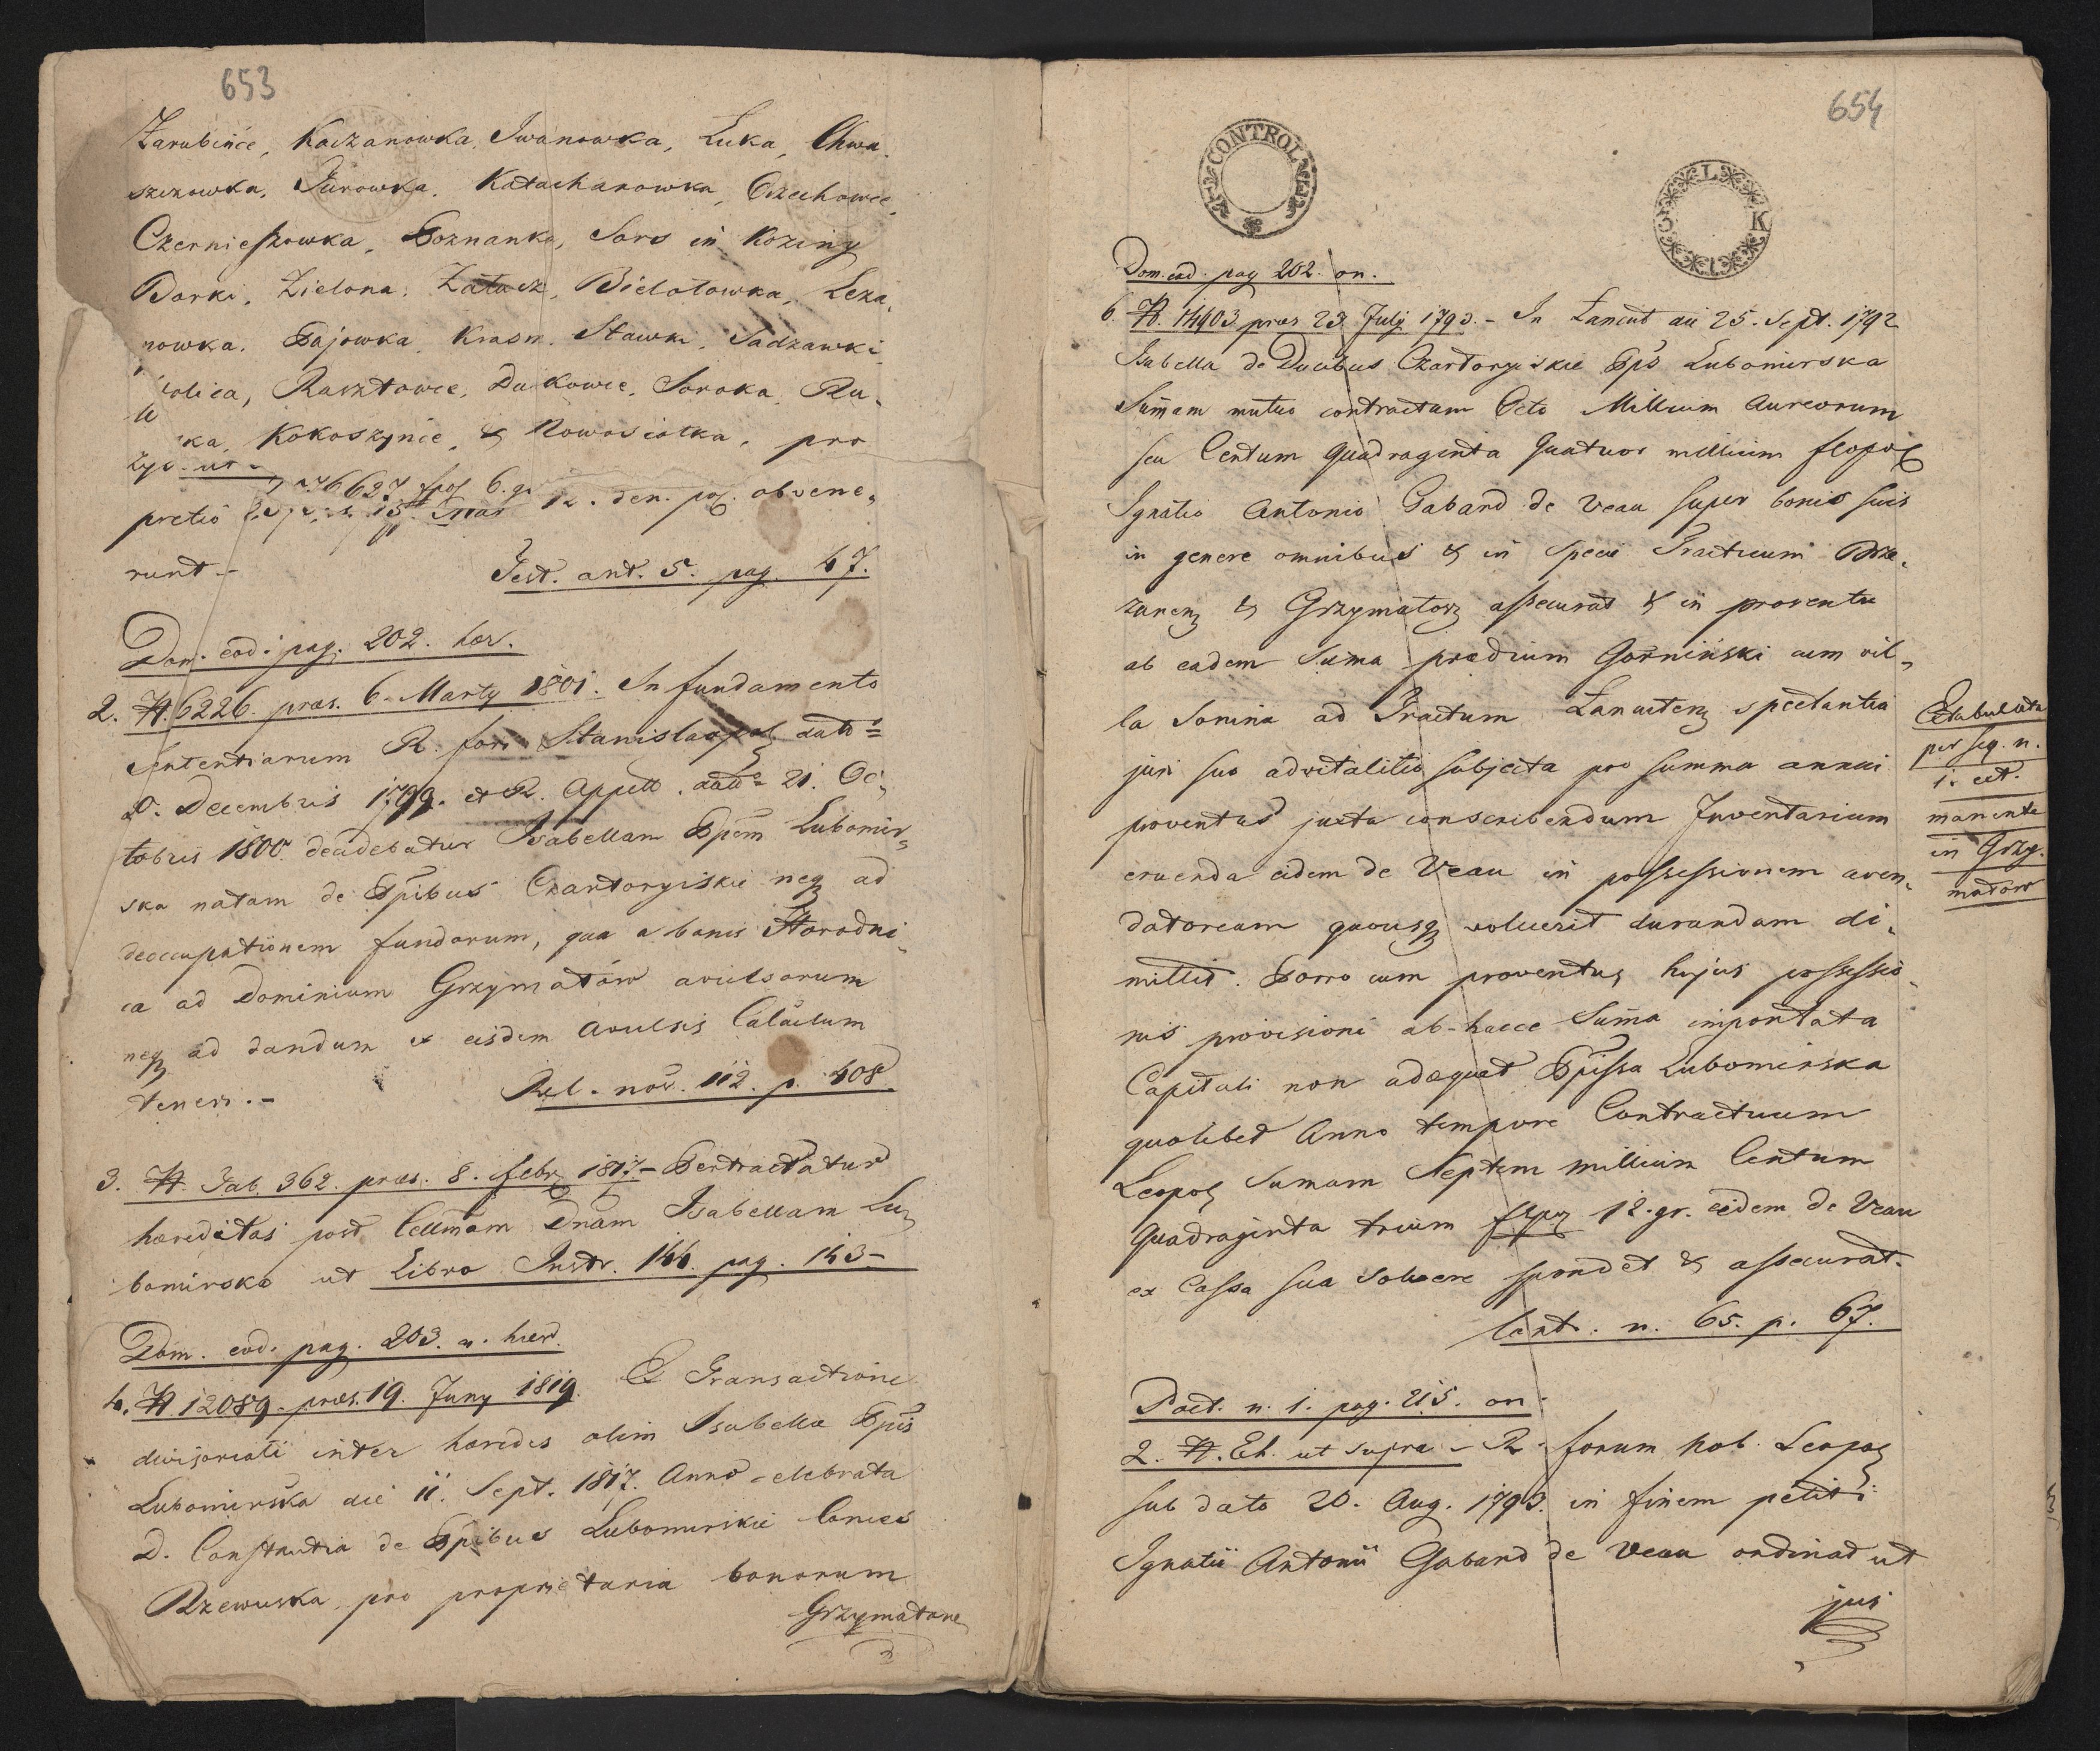 653
Zarubińce, Kaczanowka, Iwanowka, Luka, Chwa-
szczowka, Turowka, Katacharowka, Orzechowce,
Czernieszowka, Poznanka, Sors in Koziny
Borki, Zielona, Zatucz, Bielotowka, Leza-
nowka, Pajowka, Krasn. Stawki, Sadzawki
Rasztowce, Dukowce, Soroka, Ru-
Kokoszynce, & Nowosiotka, pro
pretio 6627 6. gr. 12. den. pol. obvene-
runt.-
Test. ant. 5. pag. 47.
Dom. eod. pag. 202. hær.
2. N. 6226. præs. 6. Marty 1801. In fundamento
Sententiarum R. fori Stanislaopol dato
2. Decembris 1799. et R. Appell. dato 21. Oc-
tobris 1800. deiudebatur Isabellam Ppem Lubomir-
ska natam de Ppibus Czartoryiskie neq ad
deoccupationem fundorum, qua a bonis Horodni-
ca ad Dominium Grzymatów avulsorum
neq ad dandum ex eisdem avulsis Calculum
teneri.-
Rel. nov. 112. p. 408
3. N. Tab. 362. præs. 8. febr 1817.- Pertractatur
hæreditas post Cellmam Dnam Isabellam Lu-
bomirska ut Libro Instr. 144. pag. 143-
Dom. eod. pag. 203. n. hær.
4. N. 12089. præs. 19. Juny 1819. E Transactione
divisoriali inter hæredes olim Isabella Ppis
Lubomirska die 11. Sept. 1817. Anno celebrata
D. Constantia de Ppibus Lubomirskie Comes
Rzewuska, pro proprietaria bonorum
Grzymatow
654
CONTROL
L K I C
Dom. eod. pag 202. on.
6. N. 14403 præs 23 July 1793.- In Lancut die 25. Sept. 1792
Isabella de Ducibus Czartoryiskie Pps Lubomirska
Sumam mutuo contractam Octo Millium Aureorum
seu Centum Quadraginta Quatuor millium flopol
Ignatio Antonio Gaband de Veau super bonis suis
in genere omnibus & in specie Tractuum Brze-
zanen & Grzymatow assecurat & in proventu
ab eadem Suma prædium Gorniński cum vil-
la Sonina ad Tractum Lancuten spectantia
juri suo advitalitio subjecta pro summa annui
proventus juxta conscribendum Inventarium
eruenda eidem de Veau in possessionem aren-
datoream quousq voluerit durandam di-
mittit. Porro cum proventus hujus possessio-
nis provisioni ab-hacce Suma importata
Capitali non adæquat Ppissa Lubomirska
quolibet Anno tempore Contractuum
Leopol Sumam Septem millium Centum
Quadraginta trium flpol 12. gr. eidem de Veau
ex Cassa sua solvere spondet & assecurat.
Contr. n. 65. p. 67.
Extabulata
per seq. n.
1. ext.
manente
in Grzy-
matow
Post. n. 1. pag. 215. on.
2. N. Eh. ut supra - R. forum Nob. Leopol
sub dato 20. Aug. 1793. in finem petiti
Ignatii Antonii Gaband de Veau ordinat ut
jus